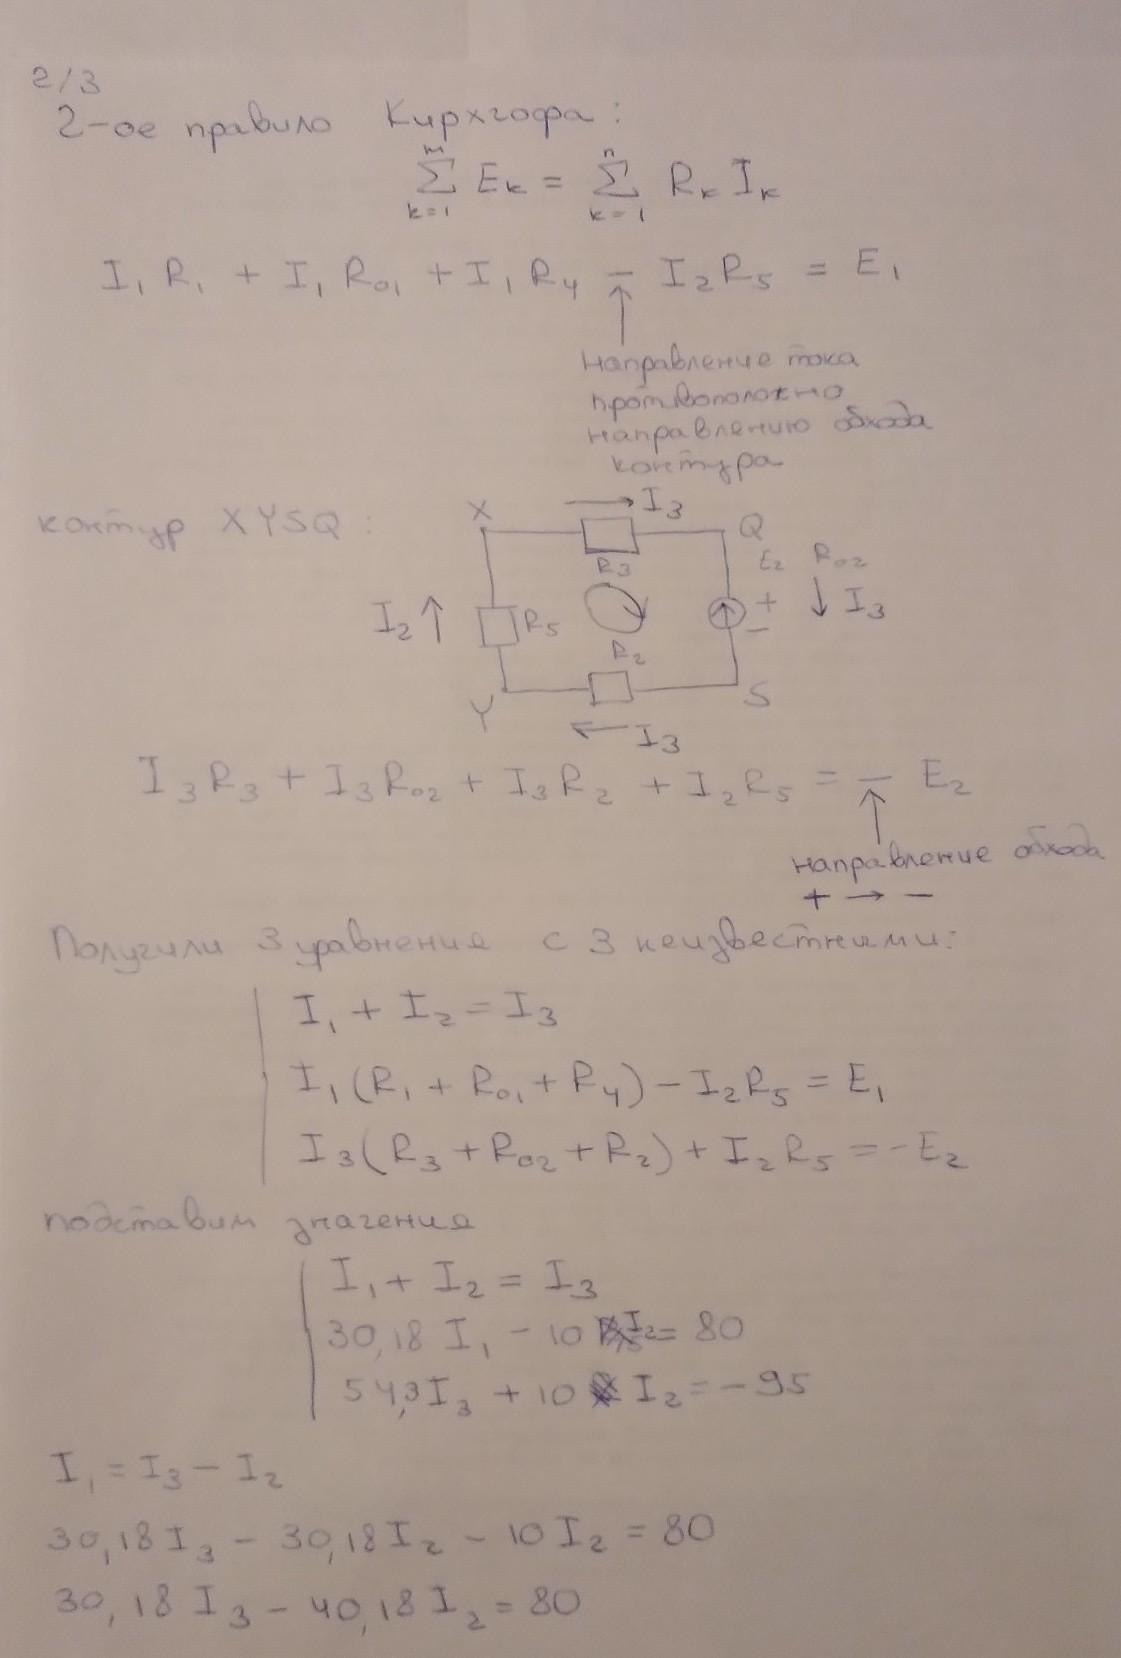 2/3
2-ое правило Кирхгофа:
m n
∑ Eₖ = ∑ Rₖ Iₖ
k=1 k=1
I₁ R₁ + I₁ R₀₁ + I₁ R₄ − I₂ R₅ = E₁
↑
направление тока
противоположно
направлению обхода
контура
контур XYSQ:
X → I₃ Q
R₃ E₂ R₀₂
I₂ ↑ R₅ + ↓ I₃
R₂ −
Y S
← I₃
I₃R₃ + I₃R₀₂ + I₃R₂ + I₂R₅ = − E₂
↑
направление обхода
+ → −
Получили 3 уравнения с 3 неизвестными:
I₁ + I₂ = I₃
I₁(R₁ + R₀₁ + R₄) − I₂R₅ = E₁
I₃(R₃ + R₀₂ + R₂) + I₂R₅ = −E₂
подставим значения
I₁ + I₂ = I₃
30,18 I₁ − 10 I₂ = 80
54,3 I₃ + 10 I₂ = −95
I₁ = I₃ − I₂
30,18 I₃ − 30,18 I₂ − 10 I₂ = 80
30,18 I₃ − 40,18 I₂ = 80